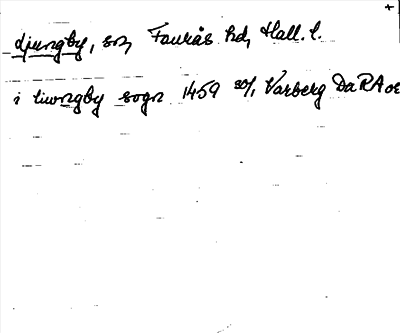 +
Ljungby, sn, Faurås hd, Hall. l.
i liwngby sogn 1459 20/1 Varberg DaRA or